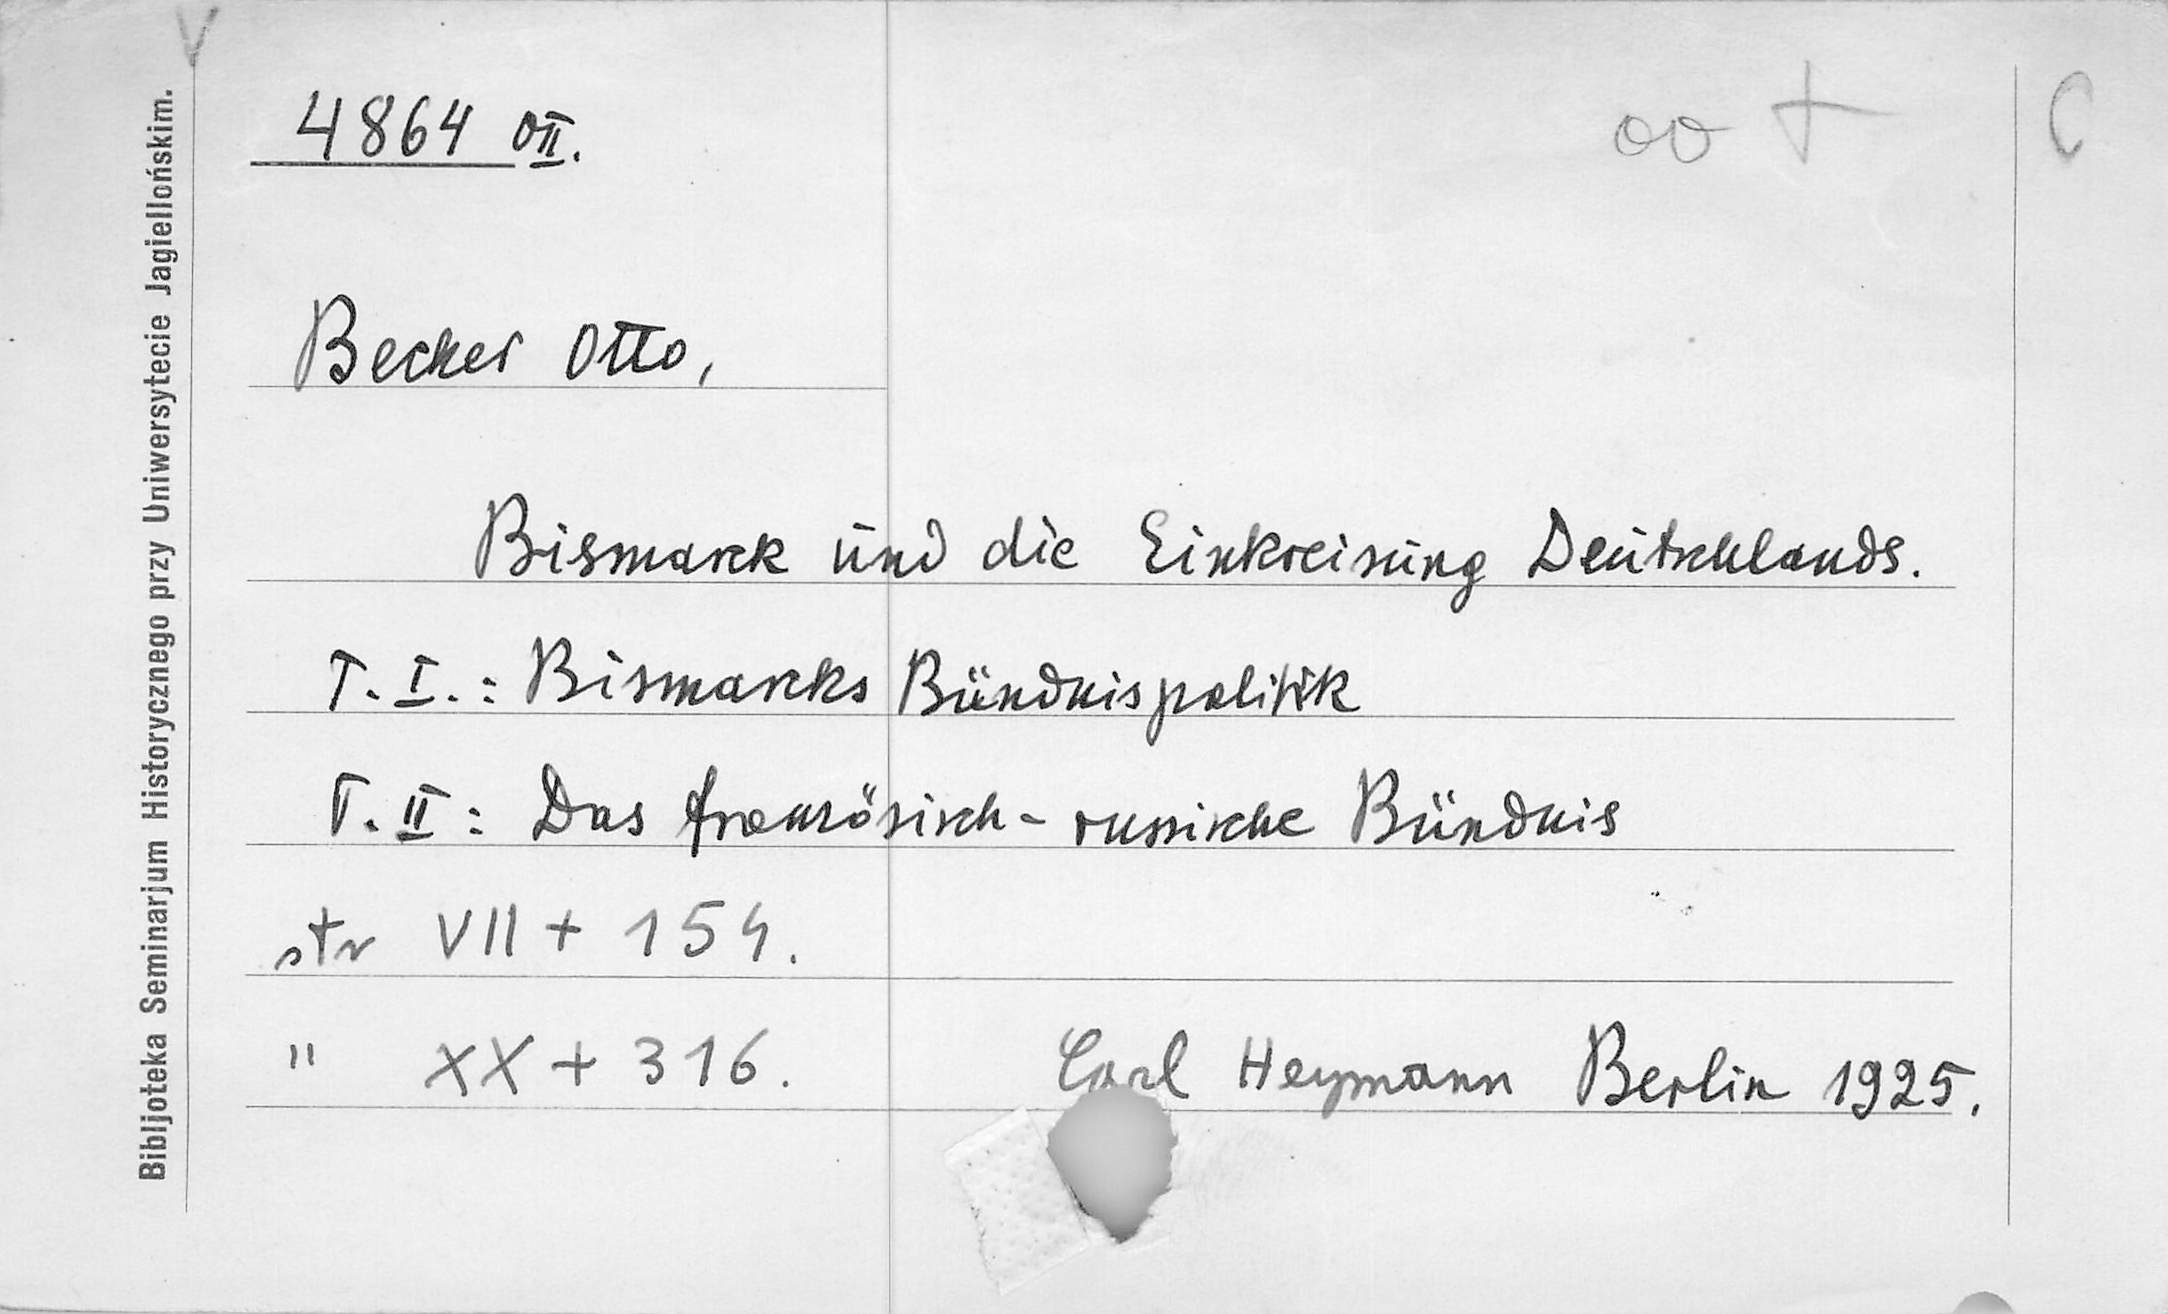 V
Bibljoteka Seminarjum Historycznego przy Uniwersytecie Jagiellońskim.
4864 OII.
oo +
C
Becker Otto,
Bismarck und die Einkreisung Deutschlands.
T. I.: Bismarcks Bündnispolitik
T. II: Das französisch-russische Bündnis
str VII + 154.
" XX + 316. Carl Heymann Berlin 1925.